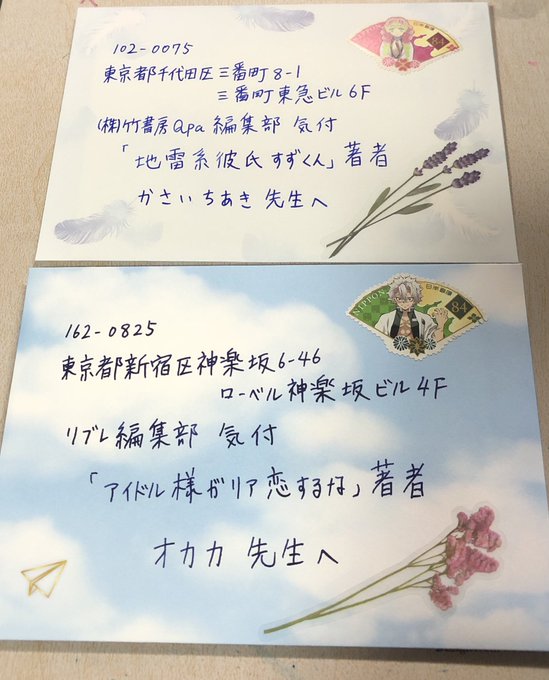 102-0075
東京都千代田区三番町8-1
三番町東急ビル6F
(株)竹書房Qpa 編集部 気付
「地雷系彼氏すずくん」著者
かさいちあき 先生へ
NIPPON
日本郵便
84
162-0825
東京都新宿区神楽坂6-46
ローベル神楽坂ビル4F
リブレ編集部 気付
「アイドル様がリア恋するな」著者
オカカ 先生へ
NIPPON
日本郵便
84